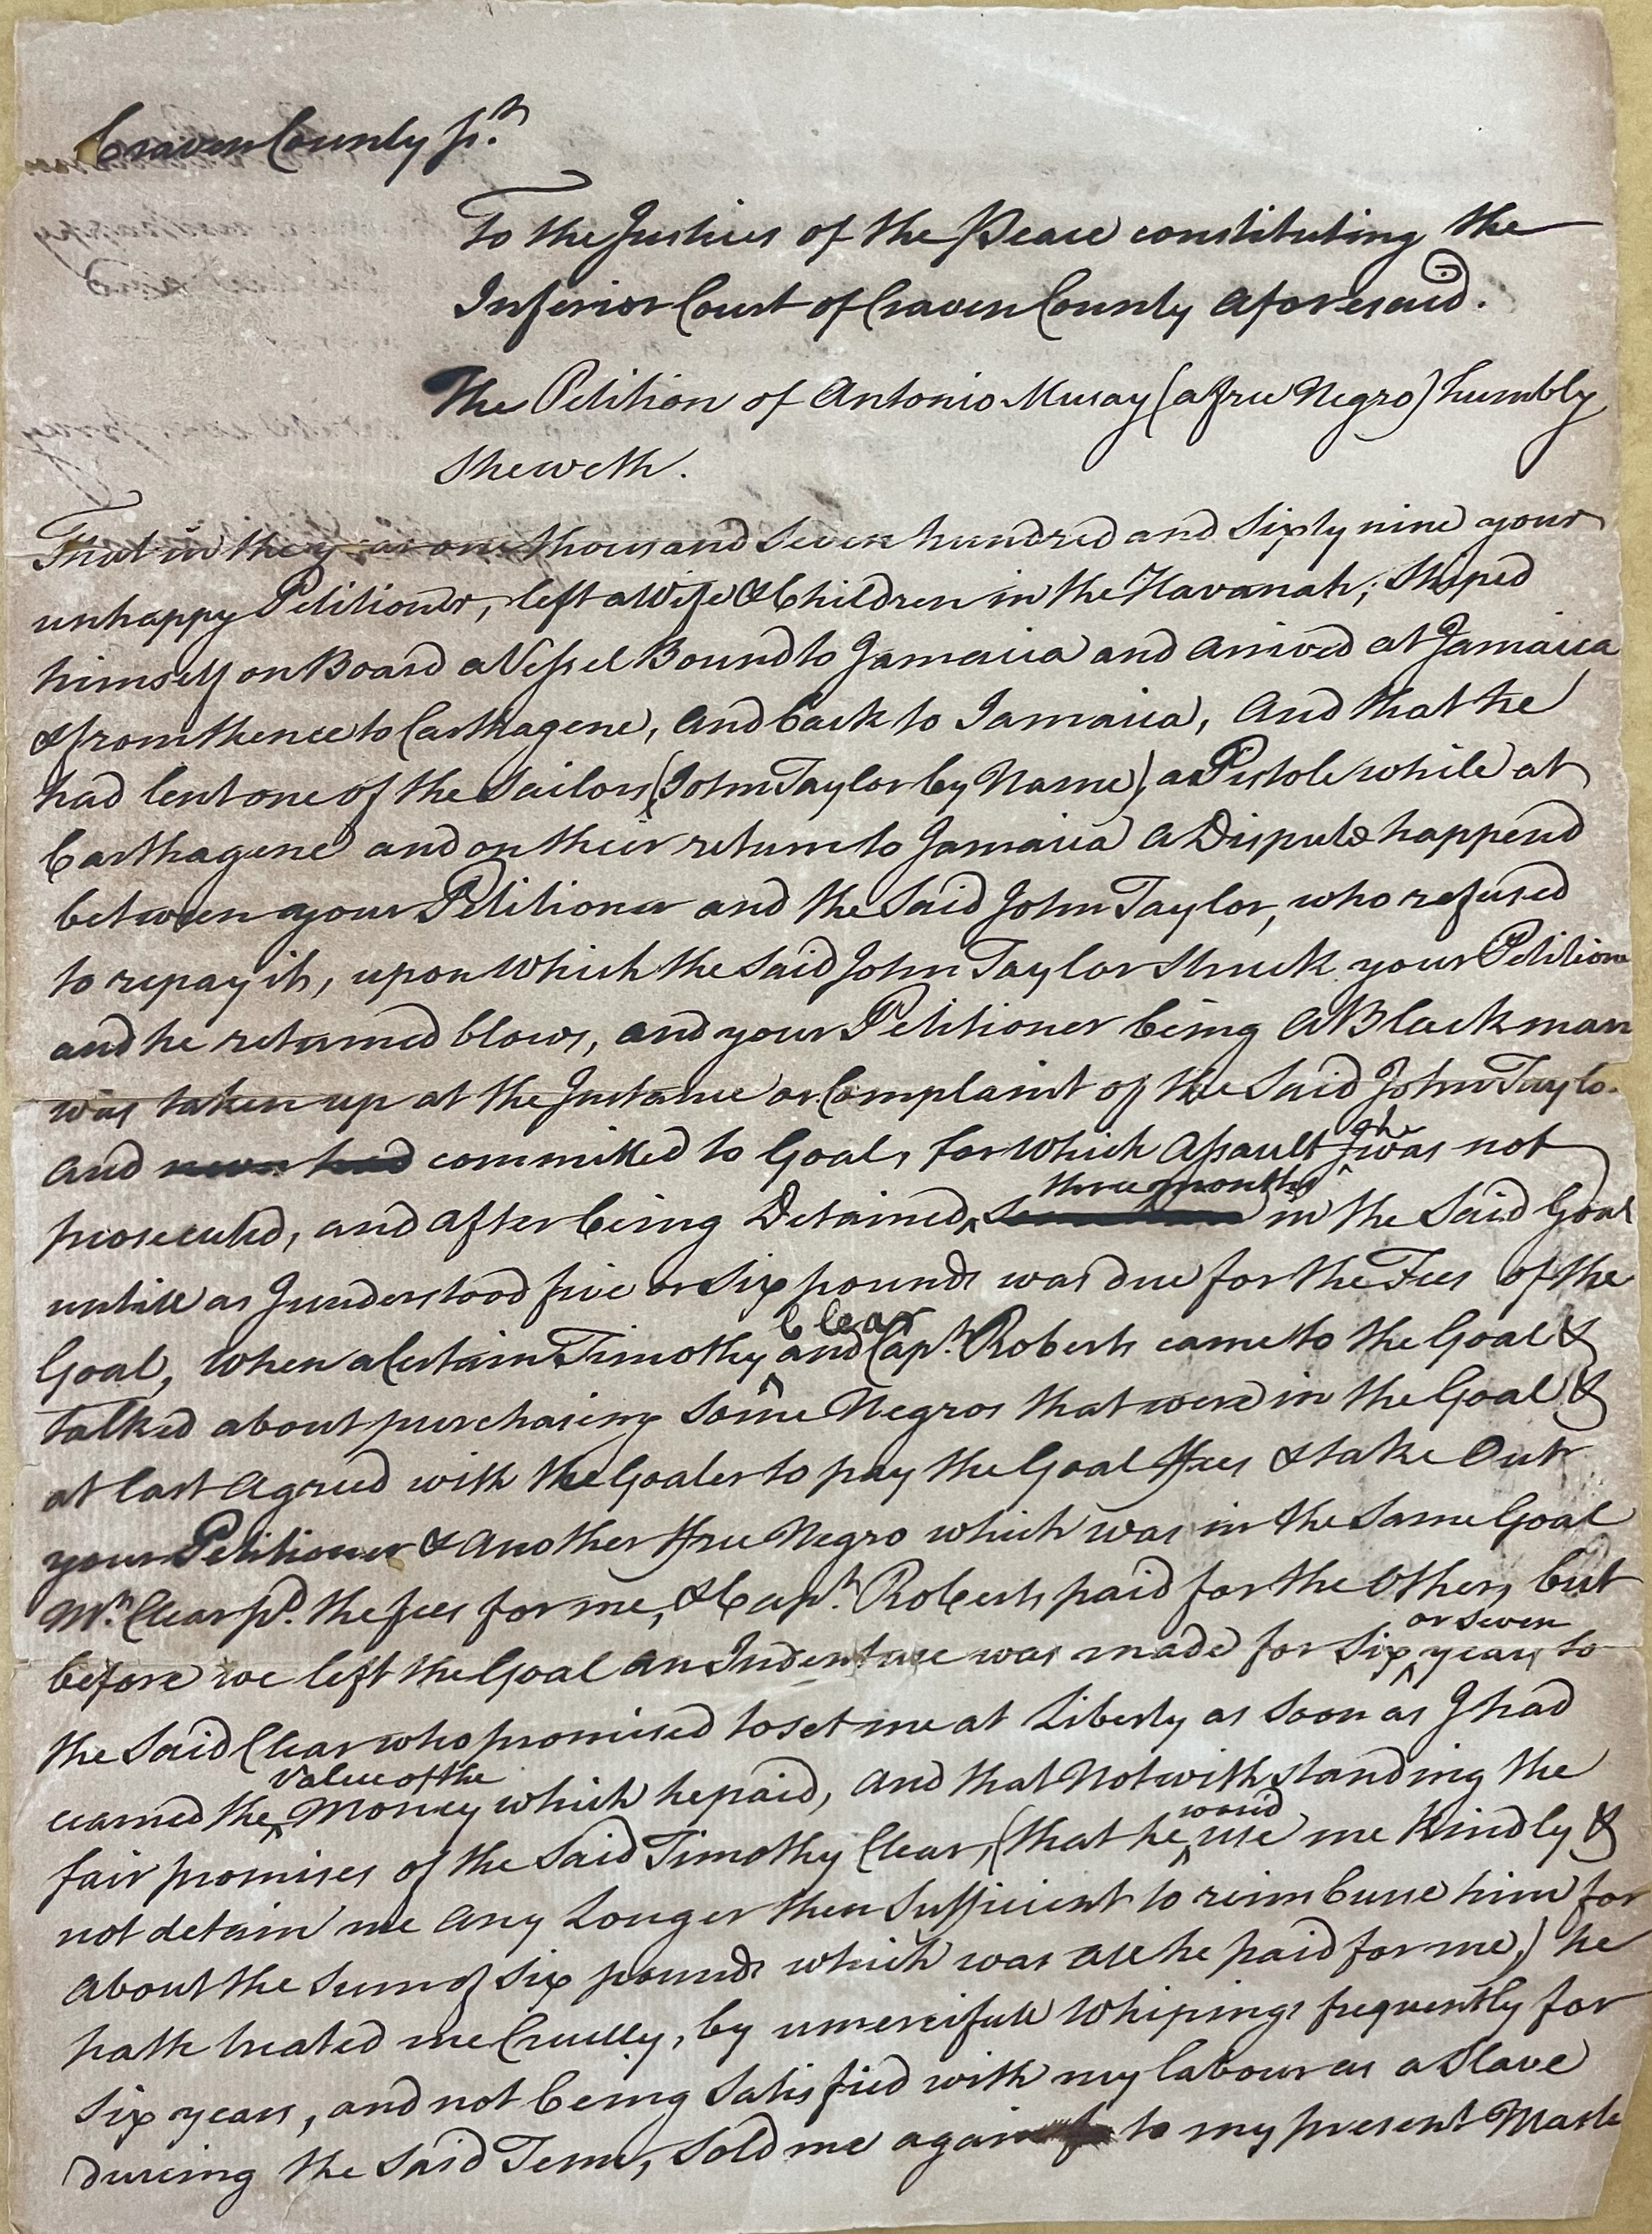 Craven County ss.
To the Justices of the Peace constituting the
Inferior Court of Craven County aforesaid.
The Petition of Antonio Musay (a free Negro) humbly
Sheweth.
That in the year one thousand Seven hundred and Sixty nine your
unhappy Petitioner, left a Wife & Children in the Havanah; Shiped
himself on Board a Vessel Bound to Jamaica and arrived at Jamaica
& from thence to Carthagene, and back to Jamaica, And that he
had lent one of the Sailors (John Taylor by Name) a Pistole while at
Carthagene and on their return to Jamaica a Dispute happend
between your Petitioner and the Said John Taylor, who refused
to repay it, upon which the Said John Taylor Struck your Petitione
and he returned blows, and your Petitioner being a Black man
was taken up at the Instance or Complaint of the Said John Taylo
and never had committed to Goal, for which Assault he was not
prosecuted, and after being Detained three months in the Said Goal
untill as I understood five or Six pounds was due for the Fees of the
Goal, when a Certain Timothy Clear and Capt. Roberts came to the Goal &
talked about purchasing Some Negros that were in the Goal &
at last agreed with the Goaler to pay the Goal ffees & take Out
your Petitioner & another ffree Negro which was in the Same Goal
Mr. Clear pd. the fees for me, & Capt. Roberts paid for the Other, but
before we left the Goal an Indenture was made for Six or Seven years to
the Said Clear who promised to set me at Liberty as Soon as I had
earned the value of the Money which he paid, and that Notwithstanding the
fair promises of the Said Timothy Clear, (that he would use me Kindly &
not detain me any Longer then Sufficient to reimburse him for
about the Sum of Six pounds which was all he paid for me,) he
hath treated me Cruelly, by unmercifull Whipings frequently for
Six years, and not being Satisfied with my labour as a Slave
during the Said Term, Sold me again to my present Maste